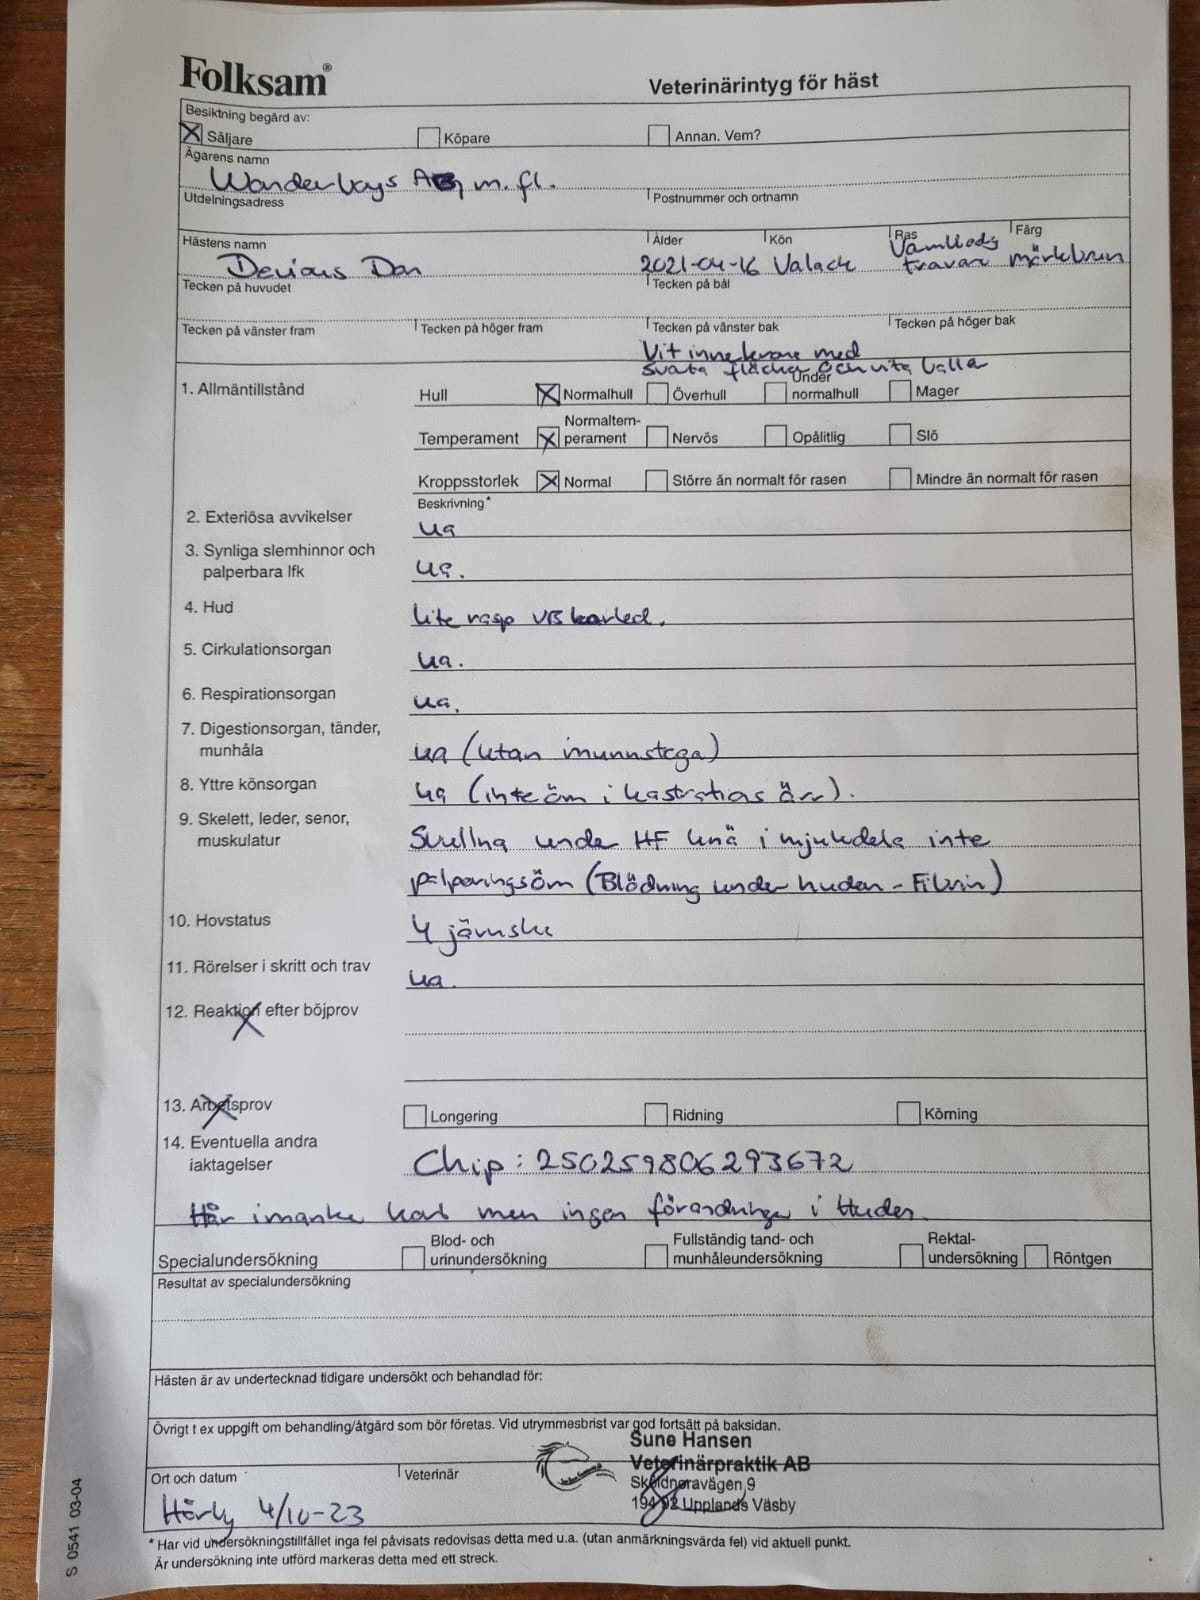 Folksam®
Veterinärintyg för häst
Besiktning begärd av:
Säljare Köpare Annan. Vem?
Ägarens namn
Wonderboys AB, m. fl.
Utdelningsadress Postnummer och ortnamn
Hästens namn Ålder Kön Ras Färg
Devious Don 2021-04-16 Valack Varmblods travare mörkbrun
Tecken på huvudet Tecken på bål
Tecken på vänster fram Tecken på höger fram Tecken på vänster bak Tecken på höger bak
Vit innekrona med
svarta fläckar och vita balla
1. Allmäntillstånd Hull Normalhull Överhull Under normalhull Mager
Temperament Normaltem-perament Nervös Opålitlig Slö
Kroppsstorlek Normal Större än normalt för rasen Mindre än normalt för rasen
Beskrivning*
2. Exteriösa avvikelser ua
3. Synliga slemhinnor och
palperbara lfk ua.
4. Hud Lite rasp VB karled.
5. Cirkulationsorgan ua.
6. Respirationsorgan ua.
7. Digestionsorgan, tänder,
munhåla ua (utan munnstega)
8. Yttre könsorgan ua (inte öm i kastrations ärr).
9. Skelett, leder, senor, Svullna under HF knä i mjukdela inte
muskulatur
palperingsöm (Blödning under huden - Fibrin)
10. Hovstatus 4 järnsko
11. Rörelser i skritt och trav ua.
12. Reaktion efter böjprov
13. Arbetsprov Longering Ridning Körning
14. Eventuella andra
iaktagelser Chip: 250259806293672
Hår imanke kort men ingen förandringer i Huden.
Specialundersökning Blod- och urinundersökning Fullständig tand- och munhåleundersökning Rektal-undersökning Röntgen
Resultat av specialundersökning
Hästen är av undertecknad tidigare undersökt och behandlad för:
Övrigt t ex uppgift om behandling/åtgärd som bör företas. Vid utrymmesbrist var god fortsätt på baksidan.
Sune Hansen
Veterinärpraktik AB
Skoldnoravägen 9
194 92 Upplands Väsby
Ort och datum Veterinär
Hörby 4/10-23
* Har vid undersökningstillfället inga fel påvisats redovisas detta med u.a. (utan anmärkningsvärda fel) vid aktuell punkt.
Är undersökning inte utförd markeras detta med ett streck.
S 0541 03-04